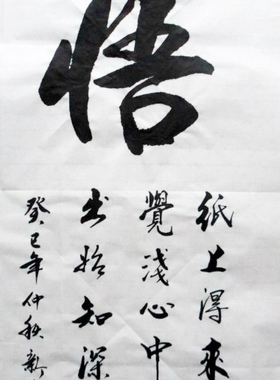 悟
紙上得来
覺淺心中
出始知深
癸巳年仲秋新